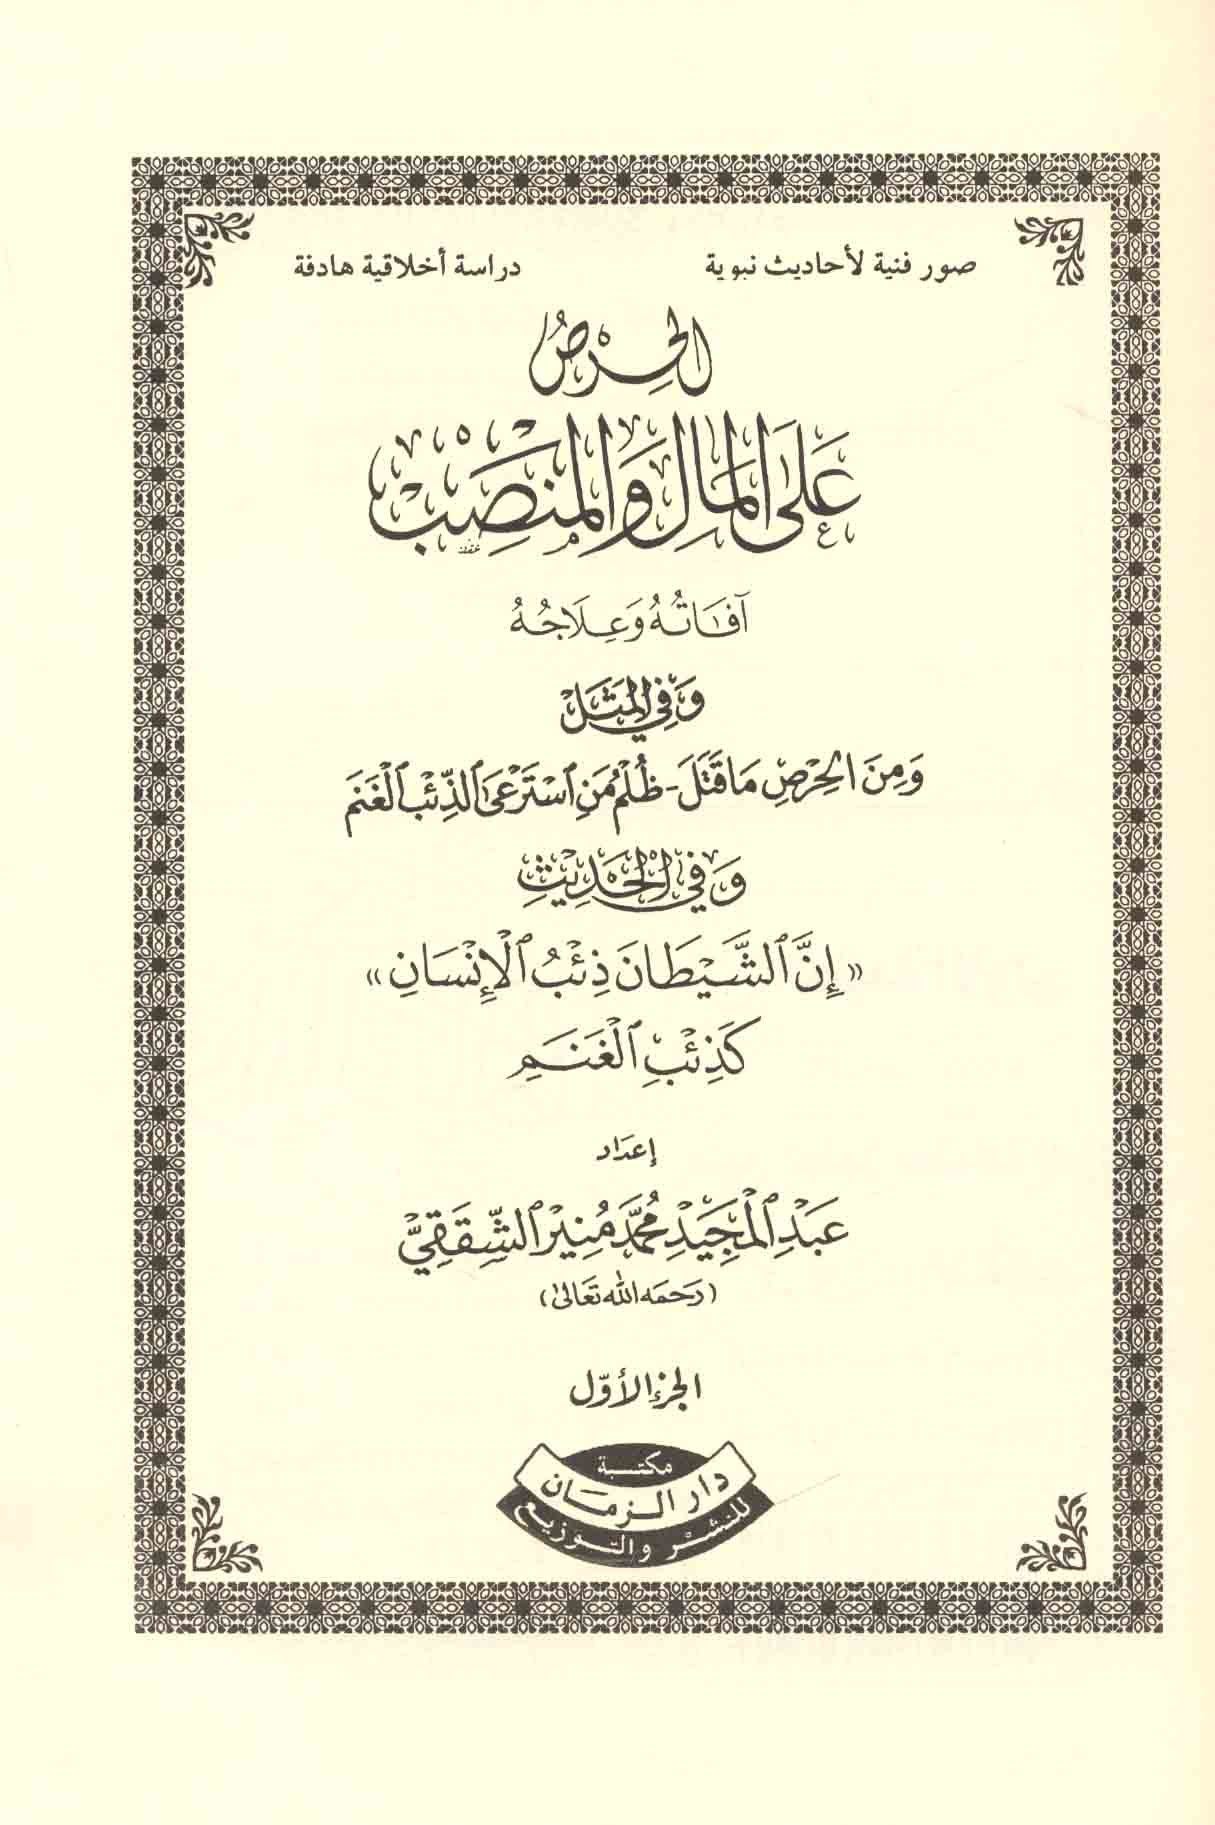 صور فنية لأحاديث نبوية دراسة أخلاقية هادفة
الحِرْصُ
عَلَى الْمَالِ وَالْمَنْصِبْ
آفَاتُهُ وَعِلَاجُهُ
وَفِي الْمَثَلْ
وَمِنَ الْحِرْصِ مَا قَتَلَ - ظُلْمُ مَنِ اسْتَرْعَى الذِّئْبَ الْغَنَمَ
وَفِي الْحَدِيْثِ
« إِنَّ الشَّيْطَانَ ذِئْبُ الْإِنْسَانِ »
كَذِئْبِ الْغَنَمِ
إعدَاد
عَبْدِ الْمَجِيْدِ مُحَمَّد مُنِيْر الشِّقَقِيّْ
(رَحمَه الله تعَالىٰ)
الجزء الأوّل
مكتبة
دار الزمان
للنشر والتوزيع